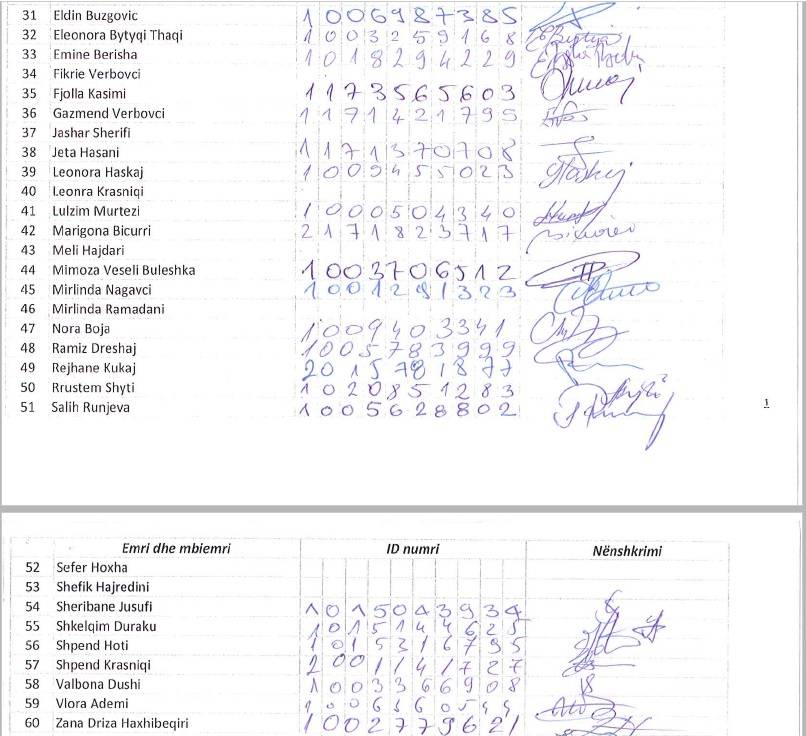 31 Eldin Buzgovic 1006987385
32 Eleonora Bytyqi Thaqi 1003259168
33 Emine Berisha 1018294229
34 Fikrie Verbovci
35 Fjolla Kasimi 1173565603
36 Gazmend Verbovci 1171421795
37 Jashar Sherifi
38 Jeta Hasani 1171370708
39 Leonora Haskaj 1009455023
40 Leonra Krasniqi
41 Lulzim Murtezi 1000504340
42 Marigona Bicurri 2171823717
43 Meli Hajdari
44 Mimoza Veseli Buleshka 1003706512
45 Mirlinda Nagavci
46 Mirlinda Ramadani
47 Nora Boja 1009403341
48 Ramiz Dreshaj 1005783999
49 Rejhane Kukaj
50 Rrustem Shyti 1020851283
51 Salih Runjeva 1005628802
1
Emri dhe mbiemri ID numri Nënshkrimi
52 Sefer Hoxha
53 Shefik Hajredini
54 Sheribane Jusufi 1015043934
55 Shkelqim Duraku 1015144625
56 Shpend Hoti 1015316795
57 Shpend Krasniqi 2001141727
58 Valbona Dushi 1003366908
59 Vlora Ademi
60 Zana Driza Haxhibeqiri 1002779621